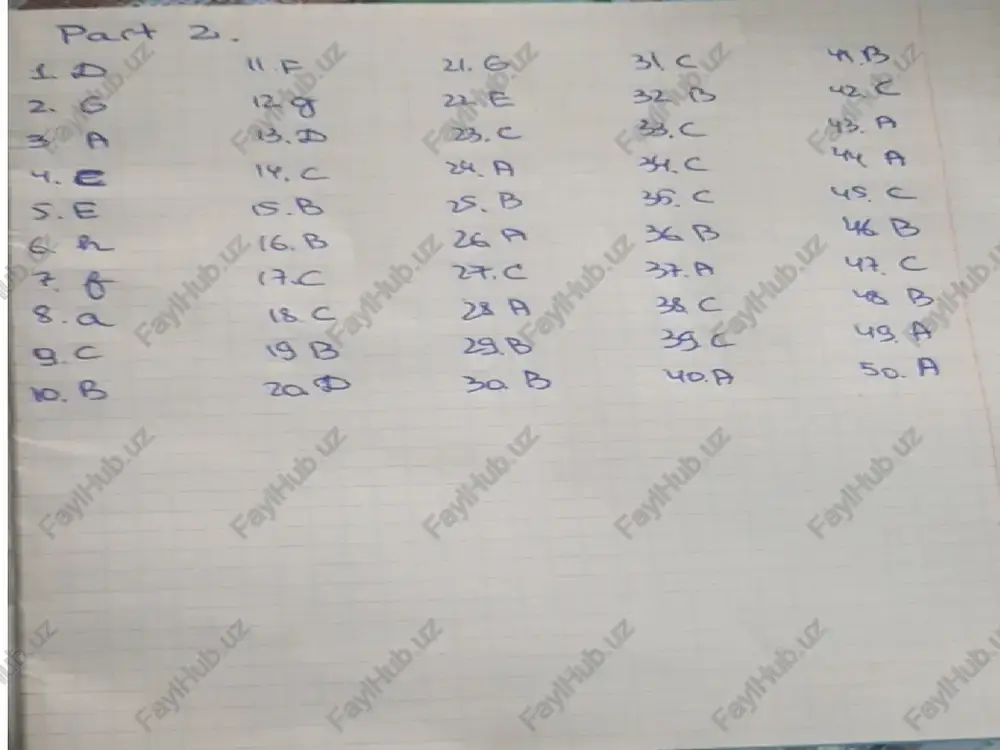 Part 2.
1. D 11. F 21. G 31. C 41. B
2. G 12. g 22. E 32. B 42. C
3. A 13. D 23. C 33. C 43. A
4. E 14. C 24. A 34. C 44. A
5. E 15. B 25. B 35. C 45. C
6. h 16. B 26. A 36. B 46. B
7. f 17. C 27. C 37. A 47. C
8. a 18. C 28. A 38. C 48. B
9. C 19. B 29. B 39. C 49. A
10. B 20. D 30. B 40. A 50. A
FaylHub.uz